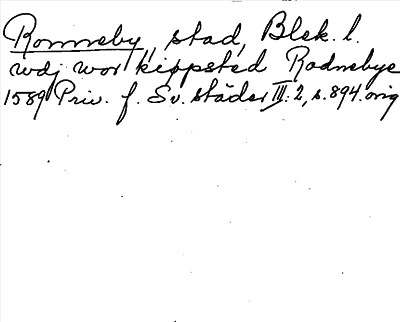 Ronneby, stad, Blek. l.
wdj wor kippsted Rodnebye
1589 Priv. f. Sv. städer III:2, s. 894. orig